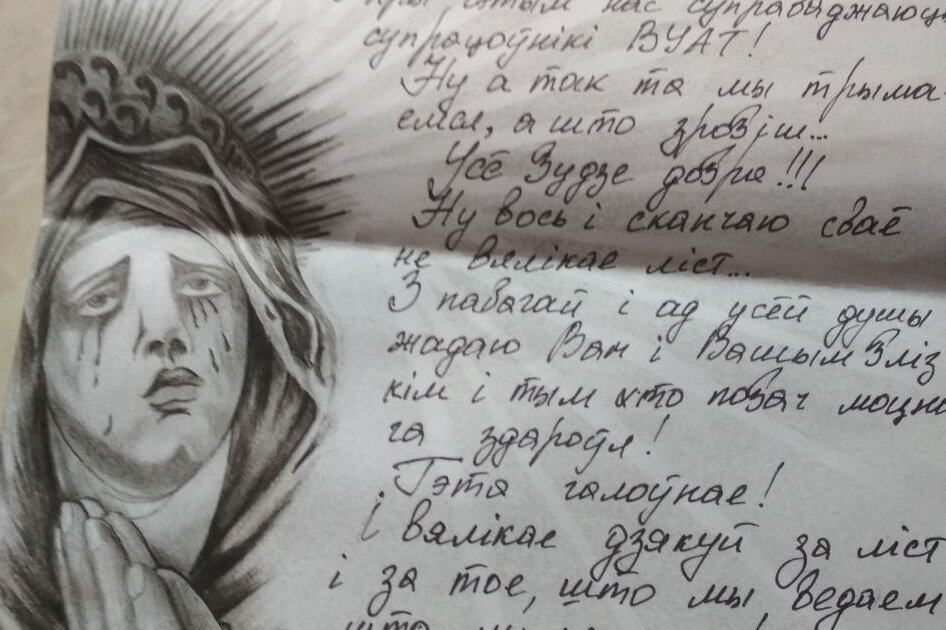 пры гэтым нас суправаджаюць
супрацоўнікі ВУАТ!
Ну а так та мы трыма-
емся, а што зробіш...
Усё будзе добра!!!
Ну вось і сканчаю сваё
не вялікае ліст...
З павагай і ад усёй душы
жадаю Вам і Вашым бліз
кім і тым хто побач моцна
га здароўя!
Гэта галоўнае!
І вялікае дзякуй за ліст
і за тое, што мы, ведаем
што